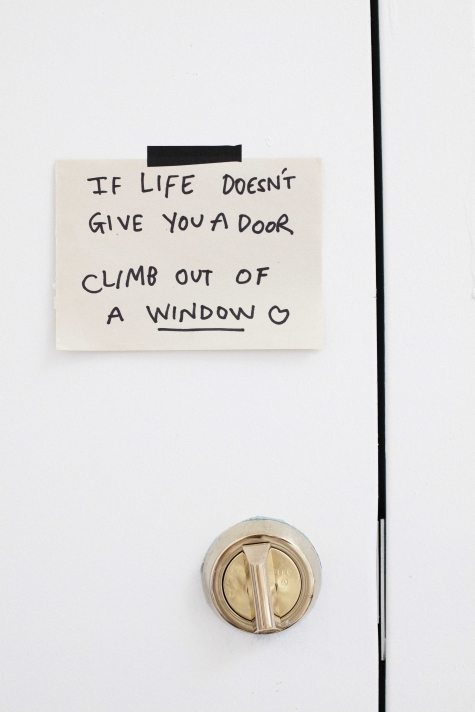 IF LIFE DOESN'T
GIVE YOU A DOOR
CLIMB OUT OF
A WINDOW ♡